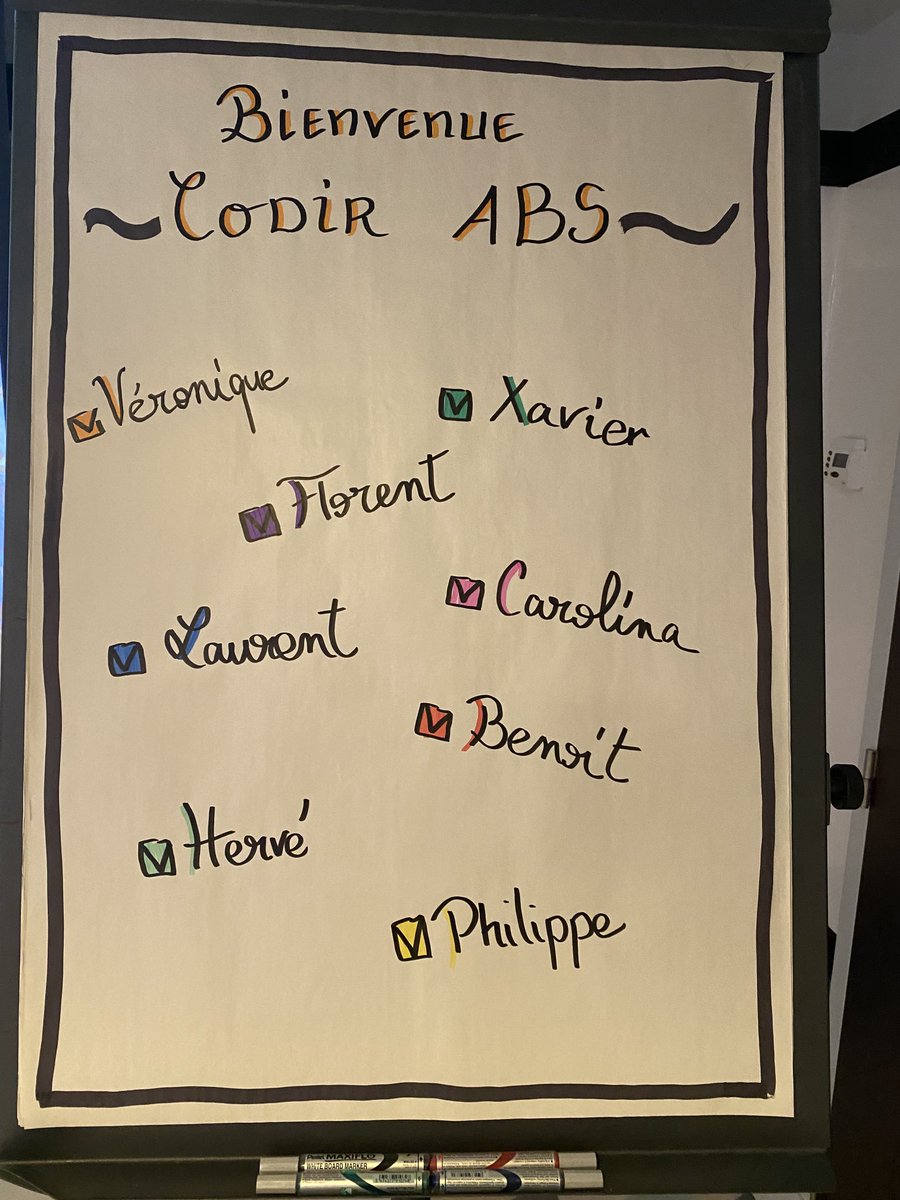 Bienvenue
~Codir ABS~
Véronique
Xavier
Florent
Carolina
Laurent
Benoit
Hervé
Philippe
Pentel MAXIFLO
WHITE BOARD MARKER